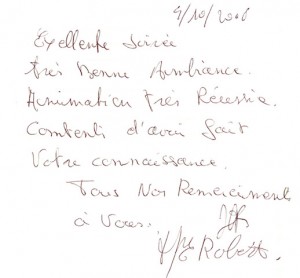 4/10/2006
Exellente Soirée
très bonne Ambiance.
Animation très Réussie.
Contents d'avoir fait
Votre connaissance.
Tous Nos Remerciements
à Vous.